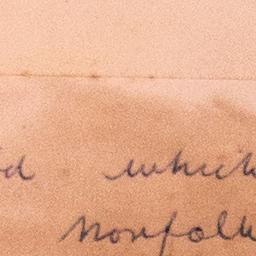 which
Norfolk